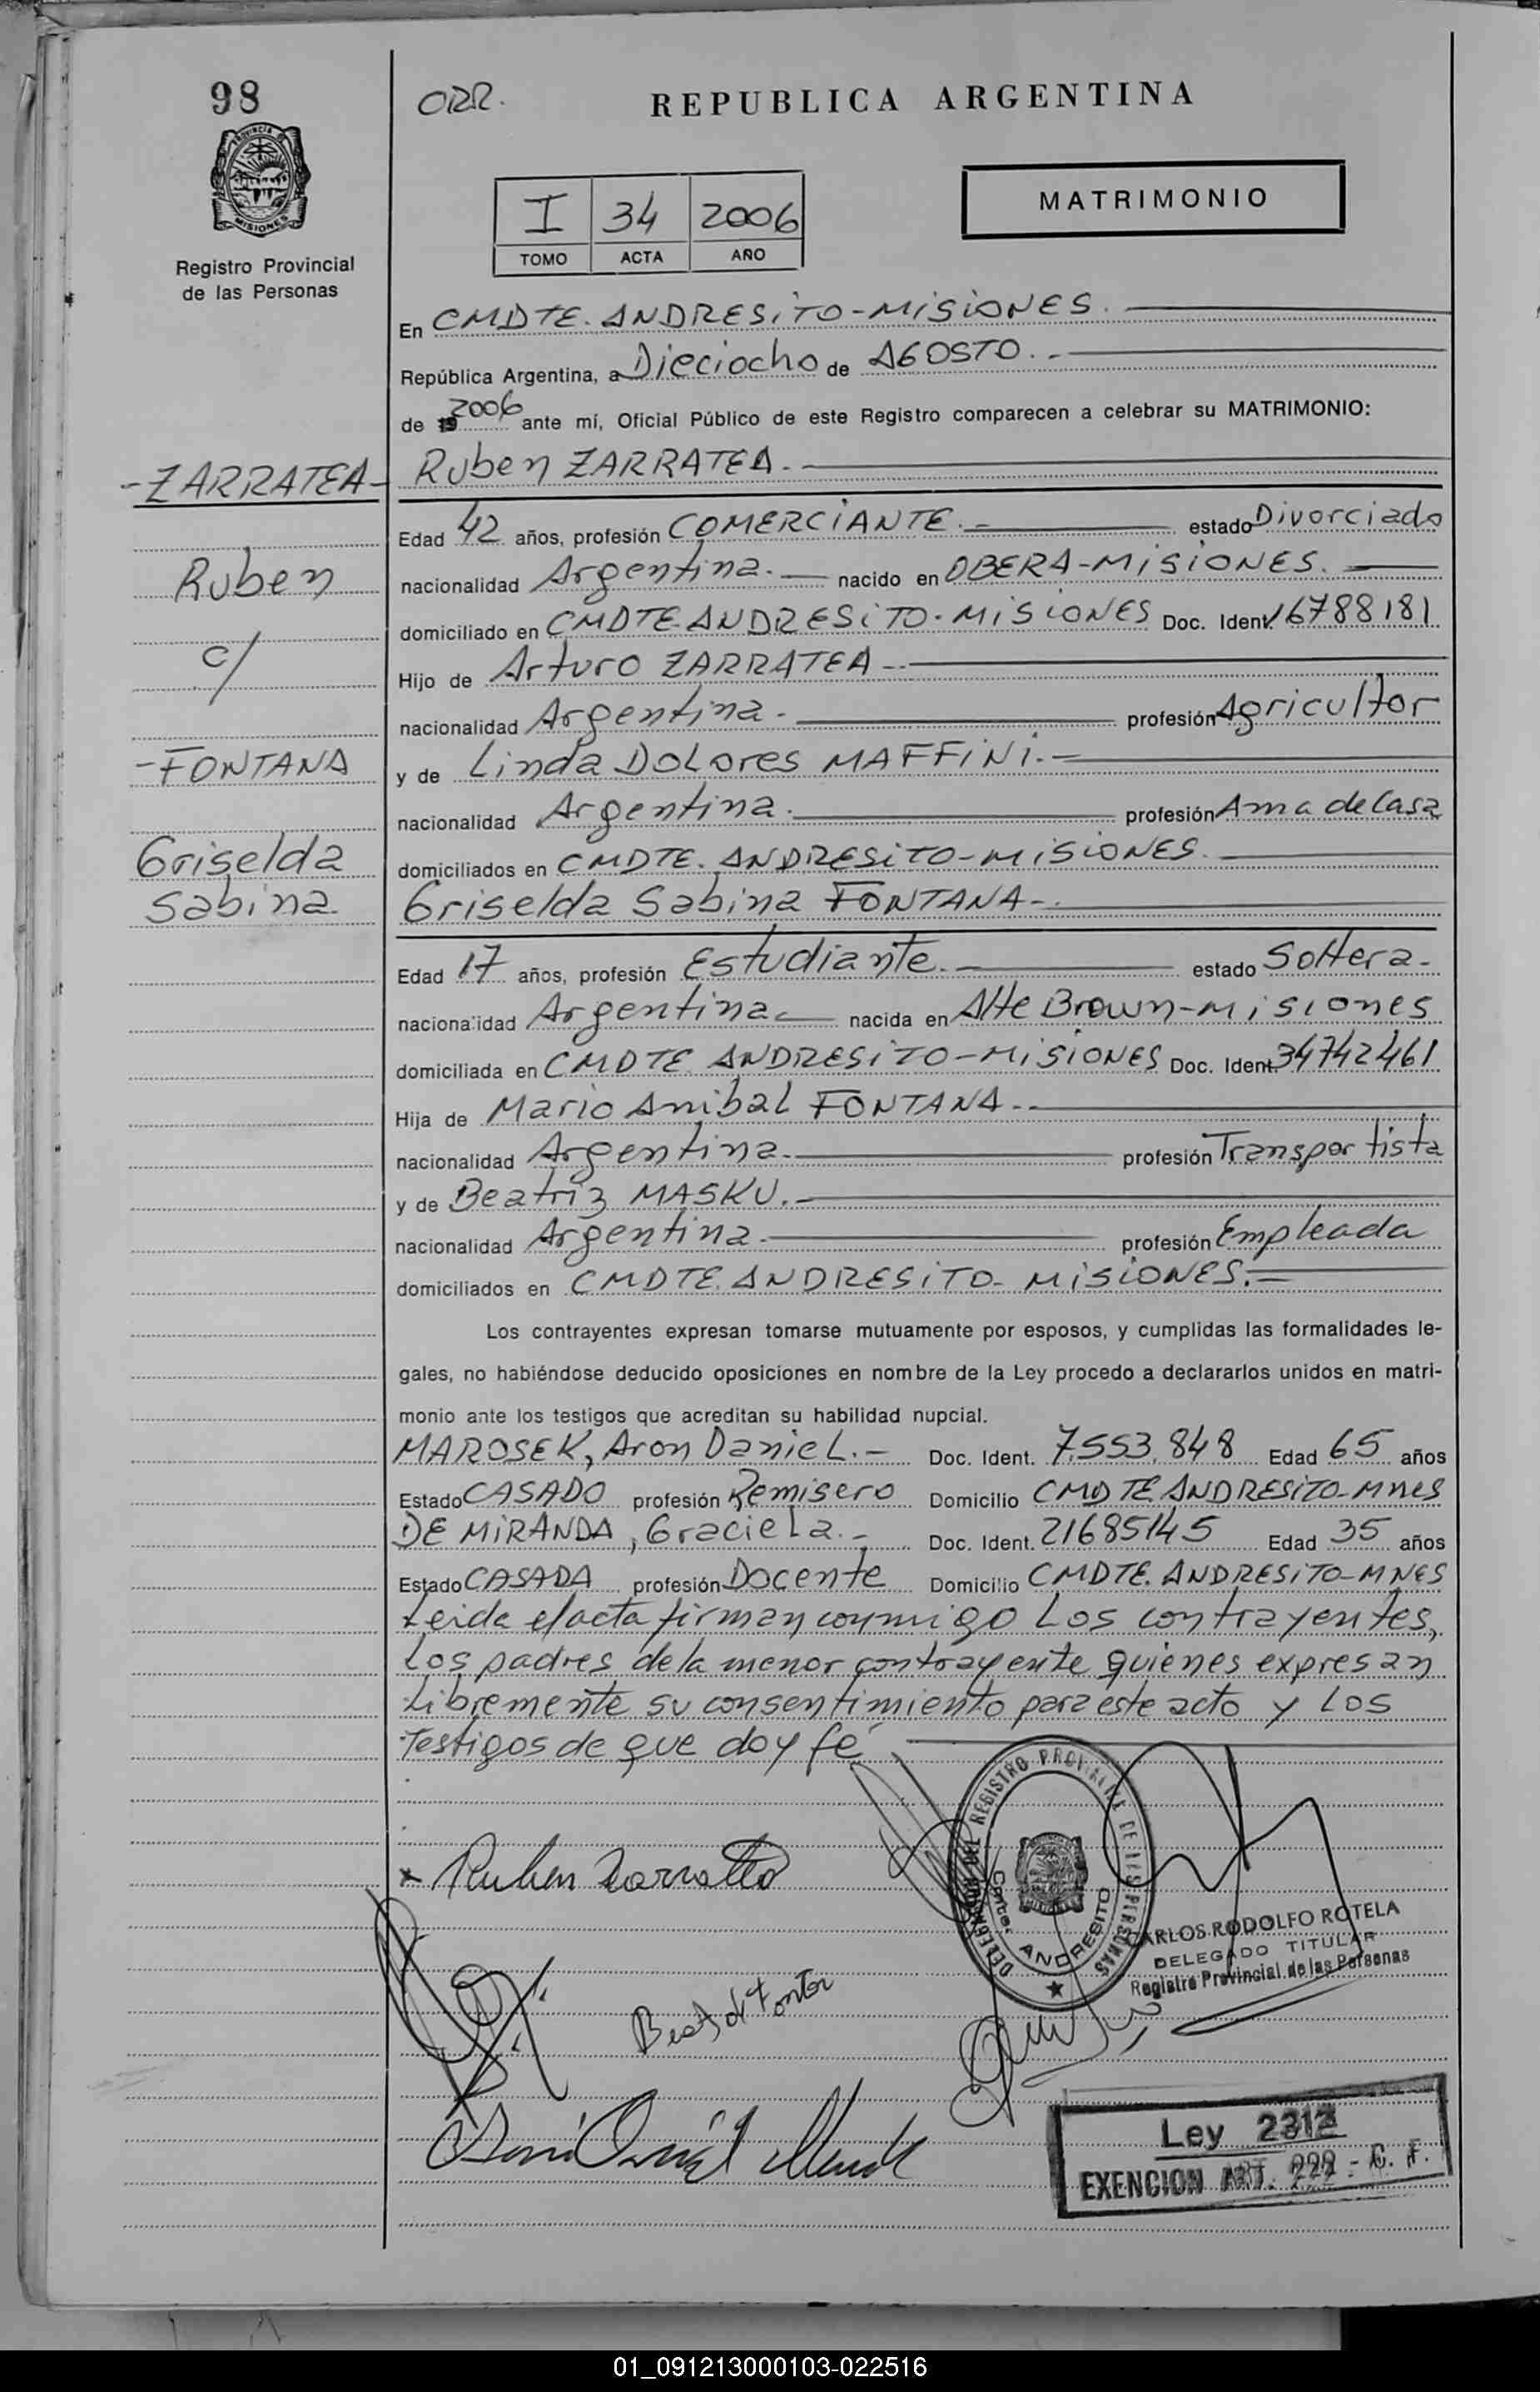 98
ORR.
REPUBLICA ARGENTINA
PROVINCIA DE
MISIONES
Registro Provincial
de las Personas
I 34 2006
TOMO ACTA AÑO
MATRIMONIO
En CMDTE. ANDRESITO-MISIONES.
República Argentina, a Dieciocho de AGOSTO.-
de 19 2006 ante mí, Oficial Público de este Registro comparecen a celebrar su MATRIMONIO:
-ZARRATEA- Ruben ZARRATEA.-
Edad 42 años, profesión COMERCIANTE.- estado Divorciado
Ruben nacionalidad Argentina.- nacido en OBERA-MISIONES.
domiciliado en CMDTE ANDRESITO-MISIONES Doc. Ident. 16788181
c/ Hijo de Arturo ZARRATEA.-
nacionalidad Argentina.- profesión Agricultor
-FONTANA y de Linda DOLores MAFFINI.-
nacionalidad Argentina.- profesión Ama de Casa
Griselda domiciliados en CMDTE. ANDRESITO-MISIONES.
Sabina. Griselda Sabina FONTANA-.
Edad 17 años, profesión Estudiante.- estado Soltera.
nacionalidad Argentina nacida en Alte Brown-Misiones
domiciliada en CMDTE ANDRESITO-MISIONES Doc. Ident. 34742461
Hija de Mario Anibal FONTANA.-
nacionalidad Argentina.- profesión Transportista
y de Beatriz MASKU.-
nacionalidad Argentina.- profesión Empleada
domiciliados en CMDTE. ANDRESITO-MISIONES.-
Los contrayentes expresan tomarse mutuamente por esposos, y cumplidas las formalidades le-
gales, no habiéndose deducido oposiciones en nombre de la Ley procedo a declararlos unidos en matri-
monio ante los testigos que acreditan su habilidad nupcial.
MAROSEK, Aron Daniel.- Doc. Ident. 7.553.848 Edad 65 años
Estado CASADO profesión Remisero Domicilio CMDTE ANDRESITO-Mnes
DE MIRANDA, Graciela.- Doc. Ident. 21685145 Edad 35 años
Estado CASADA profesión Docente Domicilio CMDTE. ANDRESITO-MNES
Leida el acta firman conmigo Los contrayentes,
Los padres de la menor contrayente quienes expresan
Libremente su consentimiento para este acto y Los
Testigos de que doy fé
DELEGACION DEL REGISTRO PROVINCIAL DE LAS PERSONAS
Cmte. ANDRESITO
x Ruben Zarratea
CARLOS RODOLFO ROTELA
DELEGADO TITULAR
Registro Provincial de las Personas
Ley 2312
EXENCION ART. 222 - C. F.
01_091213000103-022516